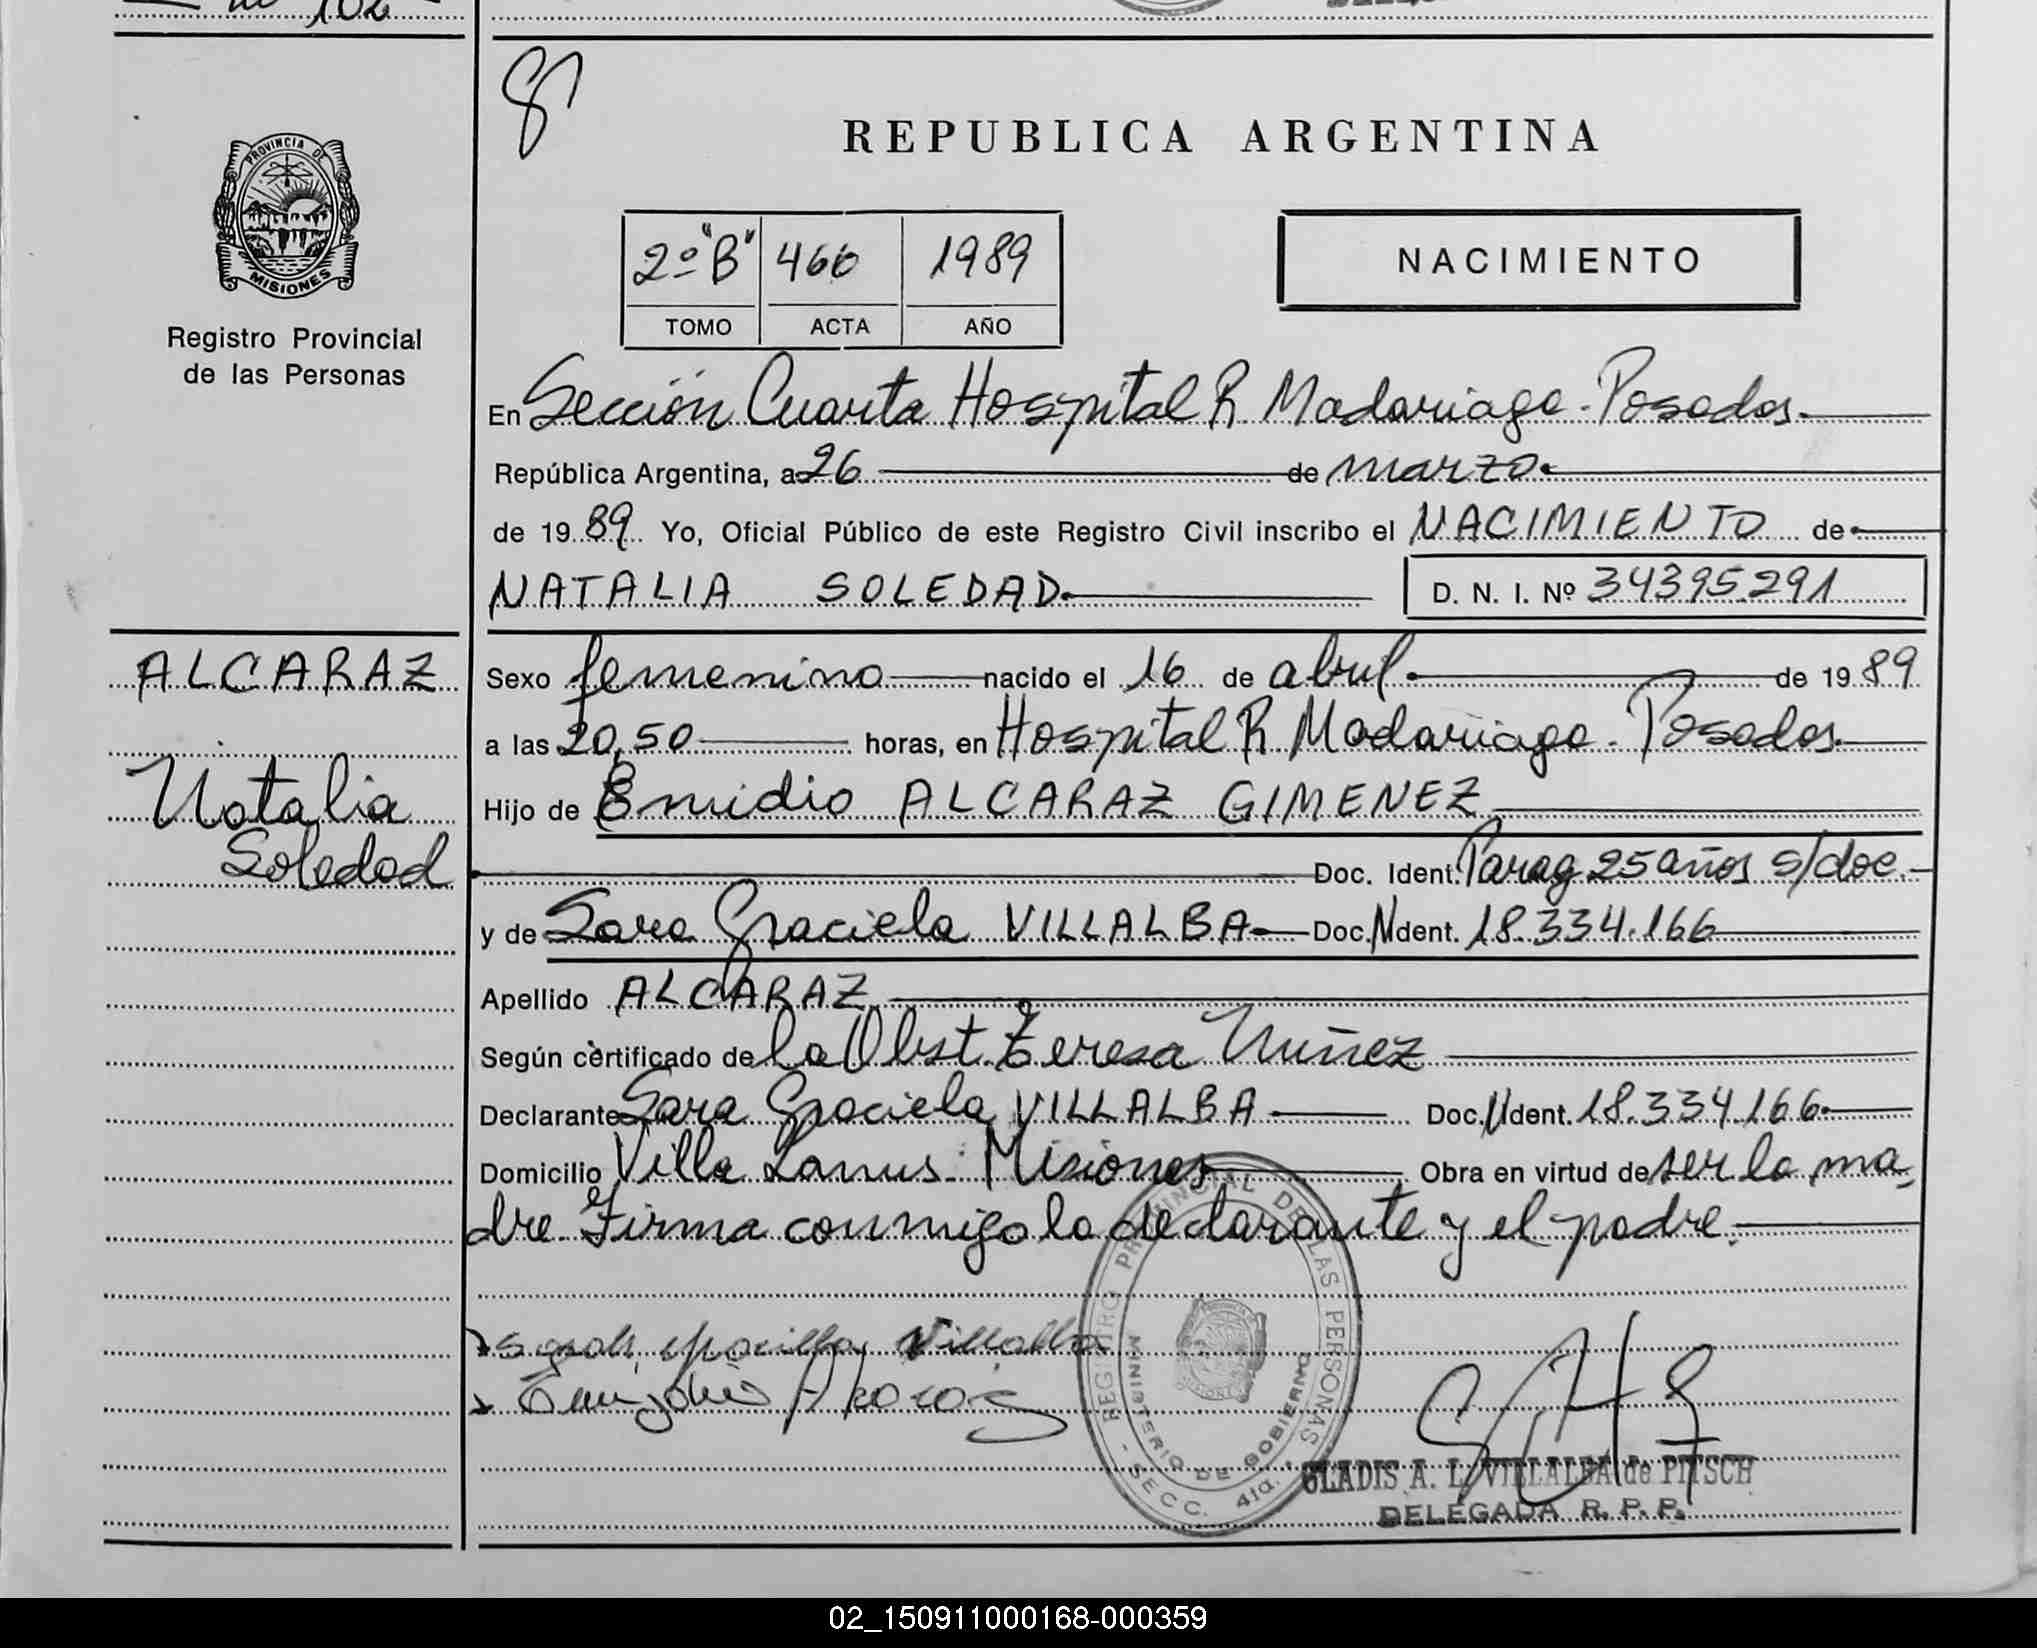 102
8
REPUBLICA ARGENTINA
PROVINCIA DE
MISIONES
Registro Provincial
de las Personas
2º "B" 466 1989
TOMO ACTA AÑO
NACIMIENTO
En Sección Cuarta Hospital R Madariaga - Posadas.
República Argentina, a 26 de marzo.
de 1989 Yo, Oficial Público de este Registro Civil inscribo el NACIMIENTO de
NATALIA SOLEDAD. D. N. I. Nº 34395291
ALCARAZ
Natalia
Soledad
Sexo femenino nacido el 16 de abril. de 1989
a las 20,50 horas, en Hospital R Madariaga - Posadas.
Hijo de Emidio ALCARAZ GIMENEZ
Doc. Ident. Parag 25 años s/doc.
y de Sara Graciela VILLALBA Doc. Ident. 18.334.166
Apellido ALCARAZ
Según certificado de la Obst. Teresa Nuñez
Declarante Sara Graciela VILLALBA Doc. Ident. 18.334.166
Domicilio Villa Lanus - Misiones Obra en virtud de ser la ma
dre. Firma conmigo la declarante y el padre.
Villalba
REGISTRO PROVINCIAL DE LAS PERSONAS
MINISTERIO DE GOBIERNO
- SECC. 4ta.
GLADIS A. L. VILLALBA de PITSCH
DELEGADA R. P. P.
02_150911000168-000359